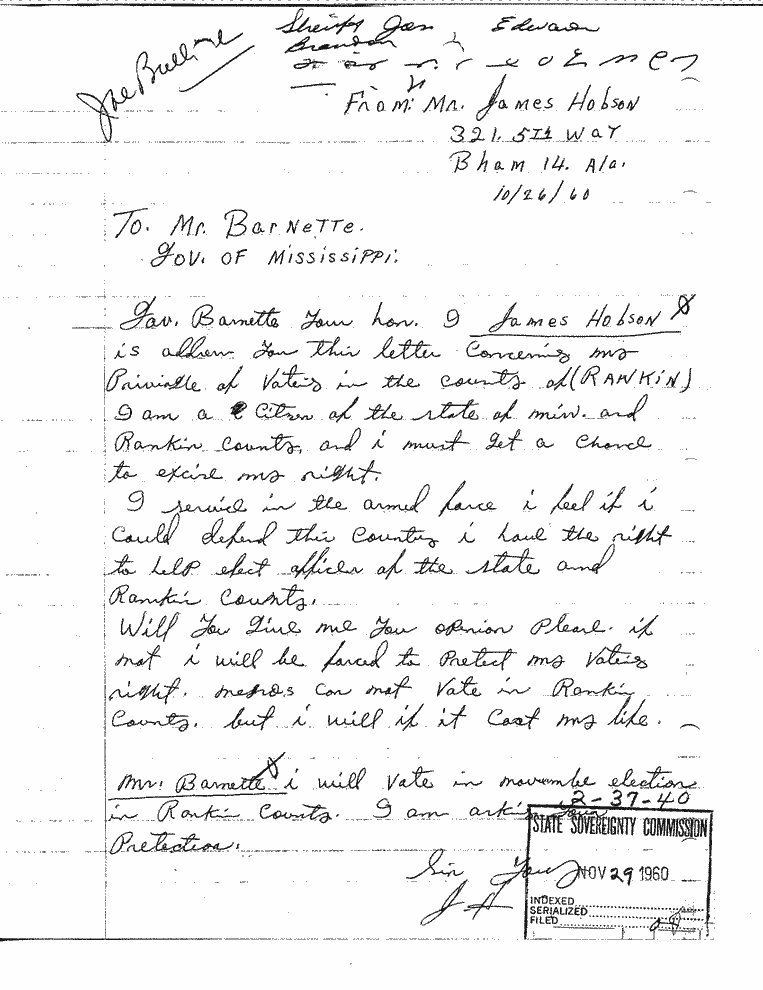 Joe Bulline
Sheriff Jon Edwards
Brandon
From: Mr. James Hobson
321. 5th Way
Bham 14. Ala.
10/26/60
To. Mr. Barnette.
Gov. of Mississippi.
Gov. Barnette Your hon. I James Hobson
is addren You this letter Concerning my
Privialle of Voting in the county of (RANKIN)
I am a Citzen of the state of miss. and
Rankin County, and i must get a chance
to excise my right.
I service in the armed force i feel if i
Could defend this Country i have the right
to help elect officer of the state and
Rankin County.
Will You Give me You openion Please. if
not i will be forced to Pretect my Voting
right. negros can not Vote in Rankin
County. but i will if it Cost my life.
Mr. Barnette i will Vote in novembe election
in Rankin County. I am askin your
Pretection.
2-37-40
Sin Your
J H
STATE SOVEREIGNTY COMMISSION
NOV 29 1960
INDEXED
SERIALIZED
FILED